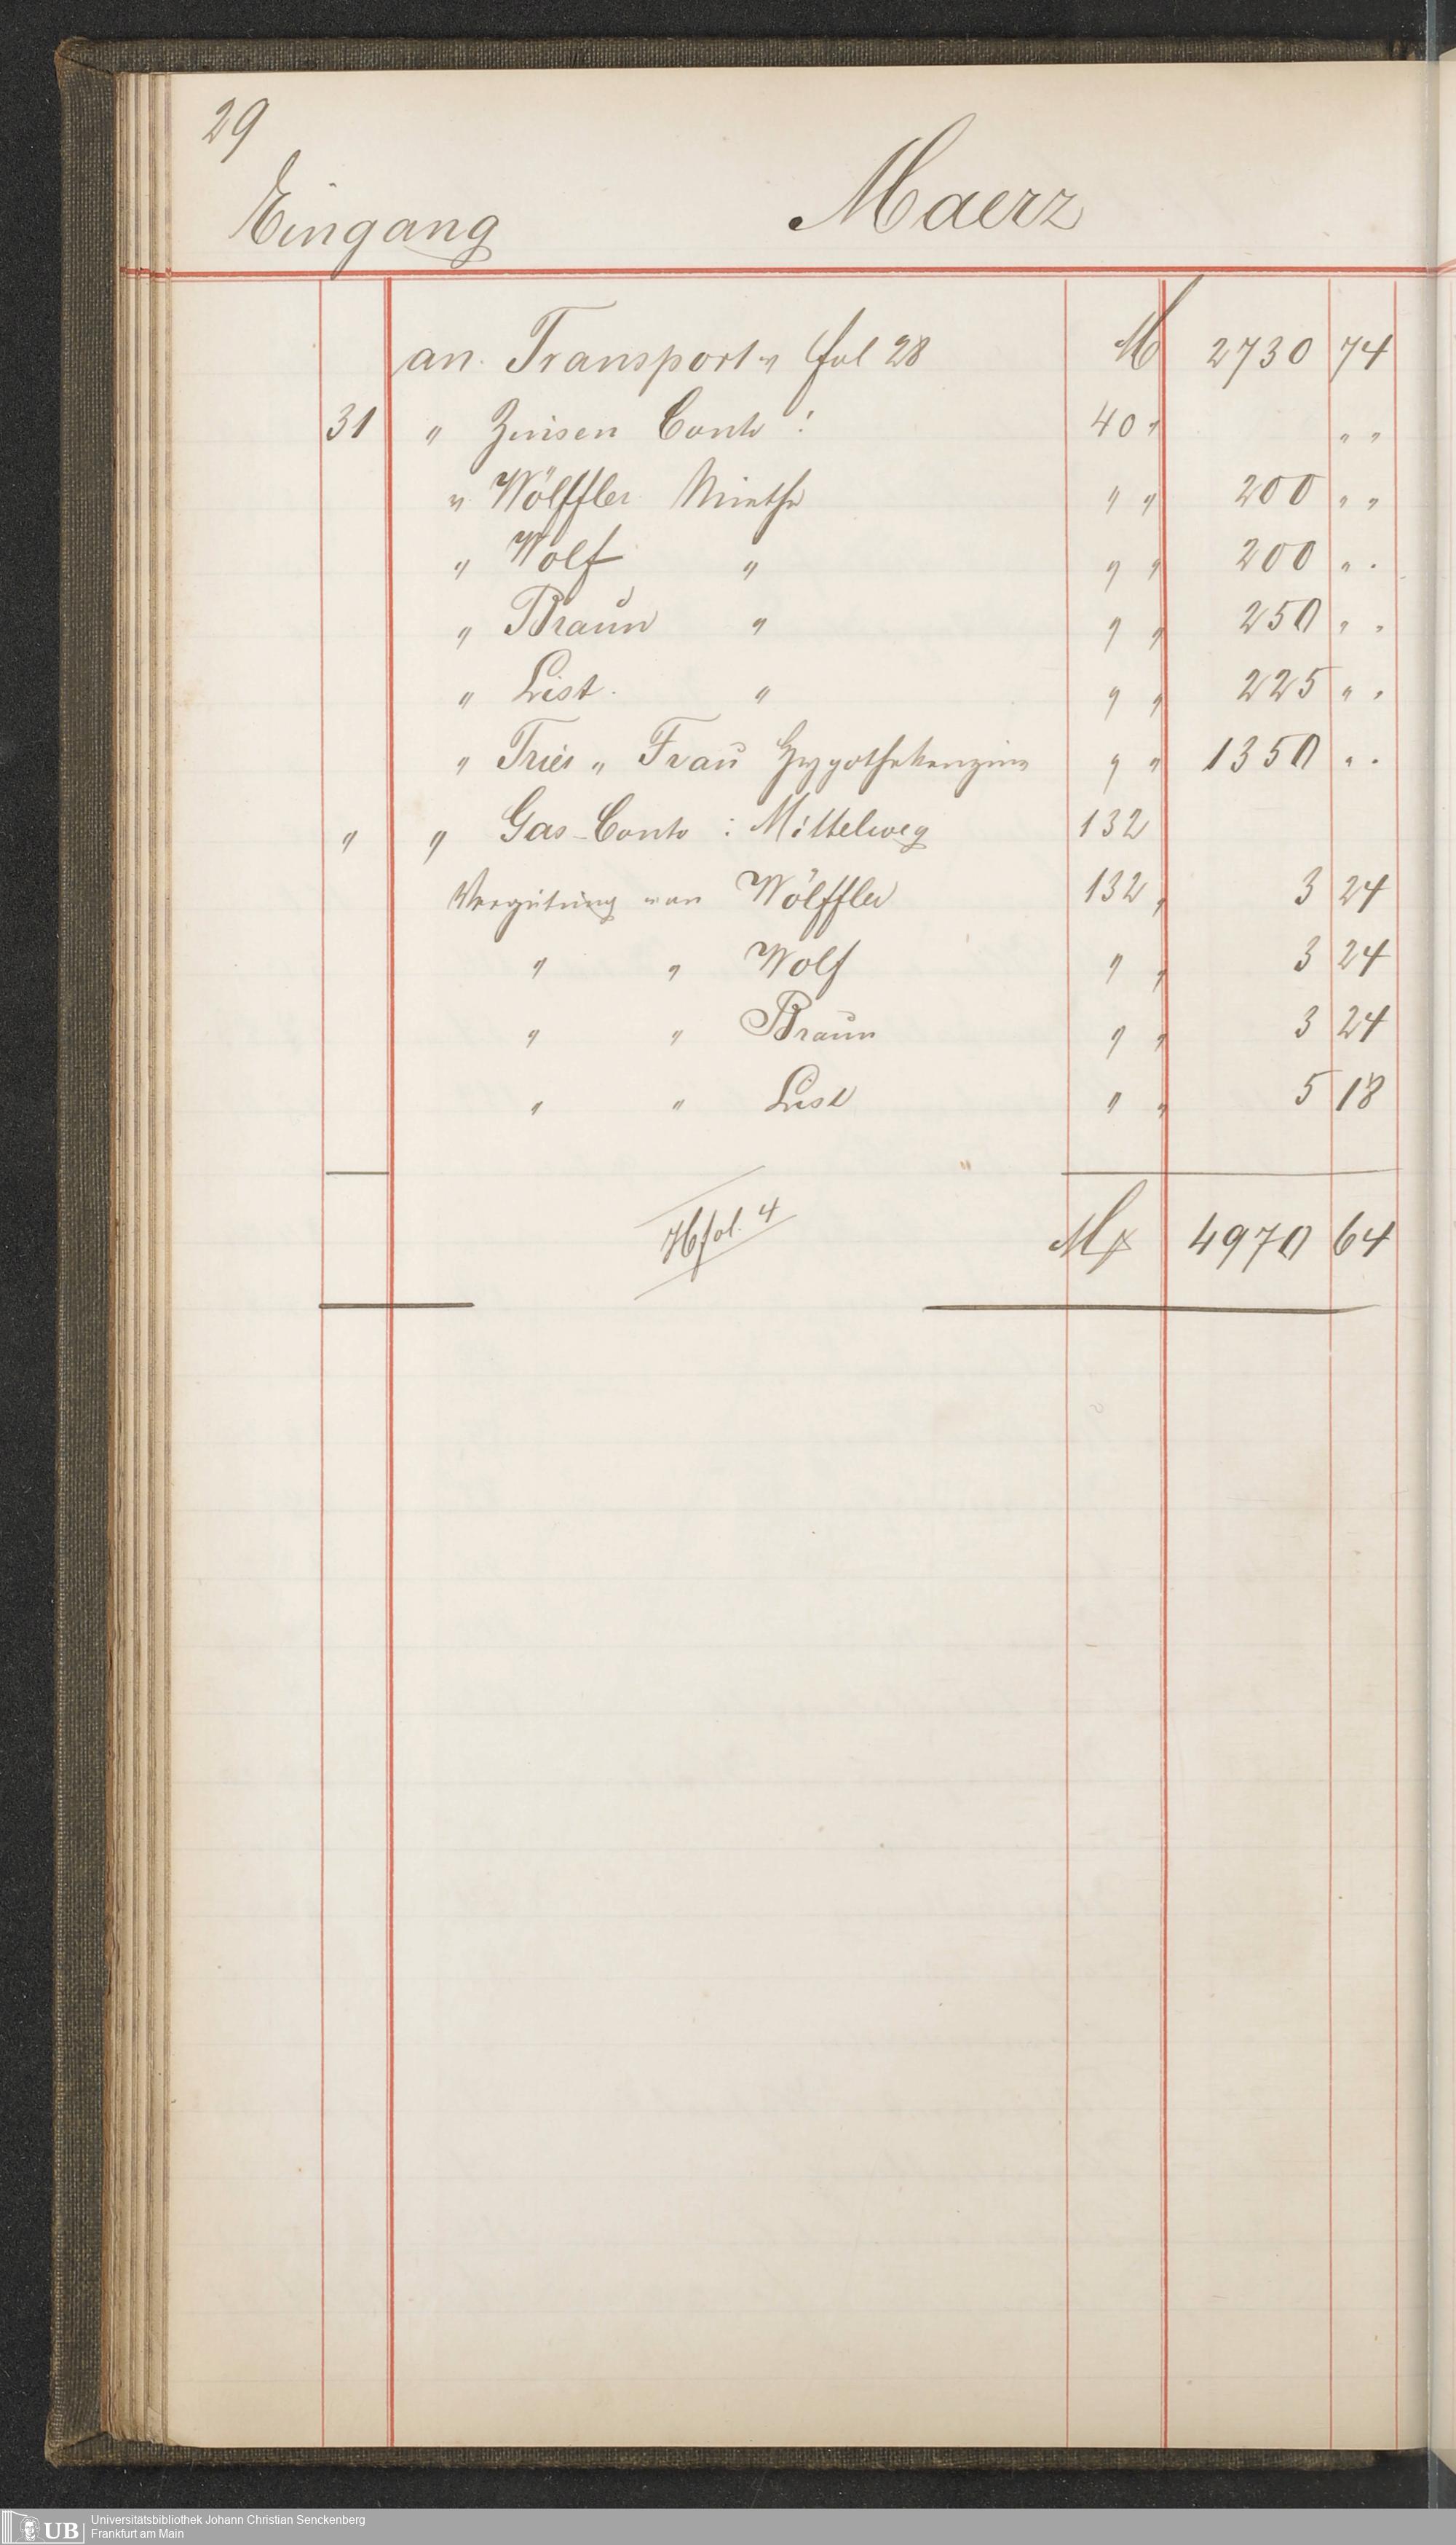 29
Eingang Maerz
an Transport v fol 28 M 2730 74
31 " Zinsen Conto : 40 " " "
" Wölffler Miethe " " 200 " "
" Wolf " " " 200 " "
" Braun " " " 250 " "
" List. " " " 225 " "
" Trier " Frau Hypothekenzins " " 1350 " "
" " Gas-Conto : Mittelweg 132
Vergütung von Wölffler 132 " 3 24
" " Wolf " " 3 24
" " Braun " " 3 24
" " List " " 5 18
Hfol. 4 M 4970 64
UB Universitätsbibliothek Johann Christian Senckenberg
Frankfurt am Main